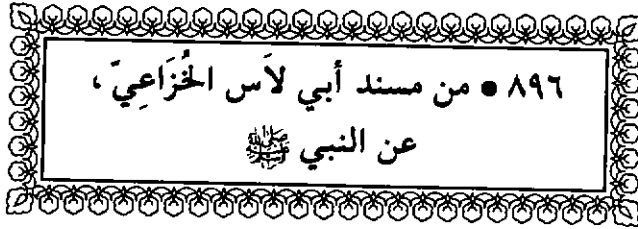 ٨٩٦ • من مسند أبي لاَس الخُزَاعِيّ،
عن النبي ﷺ